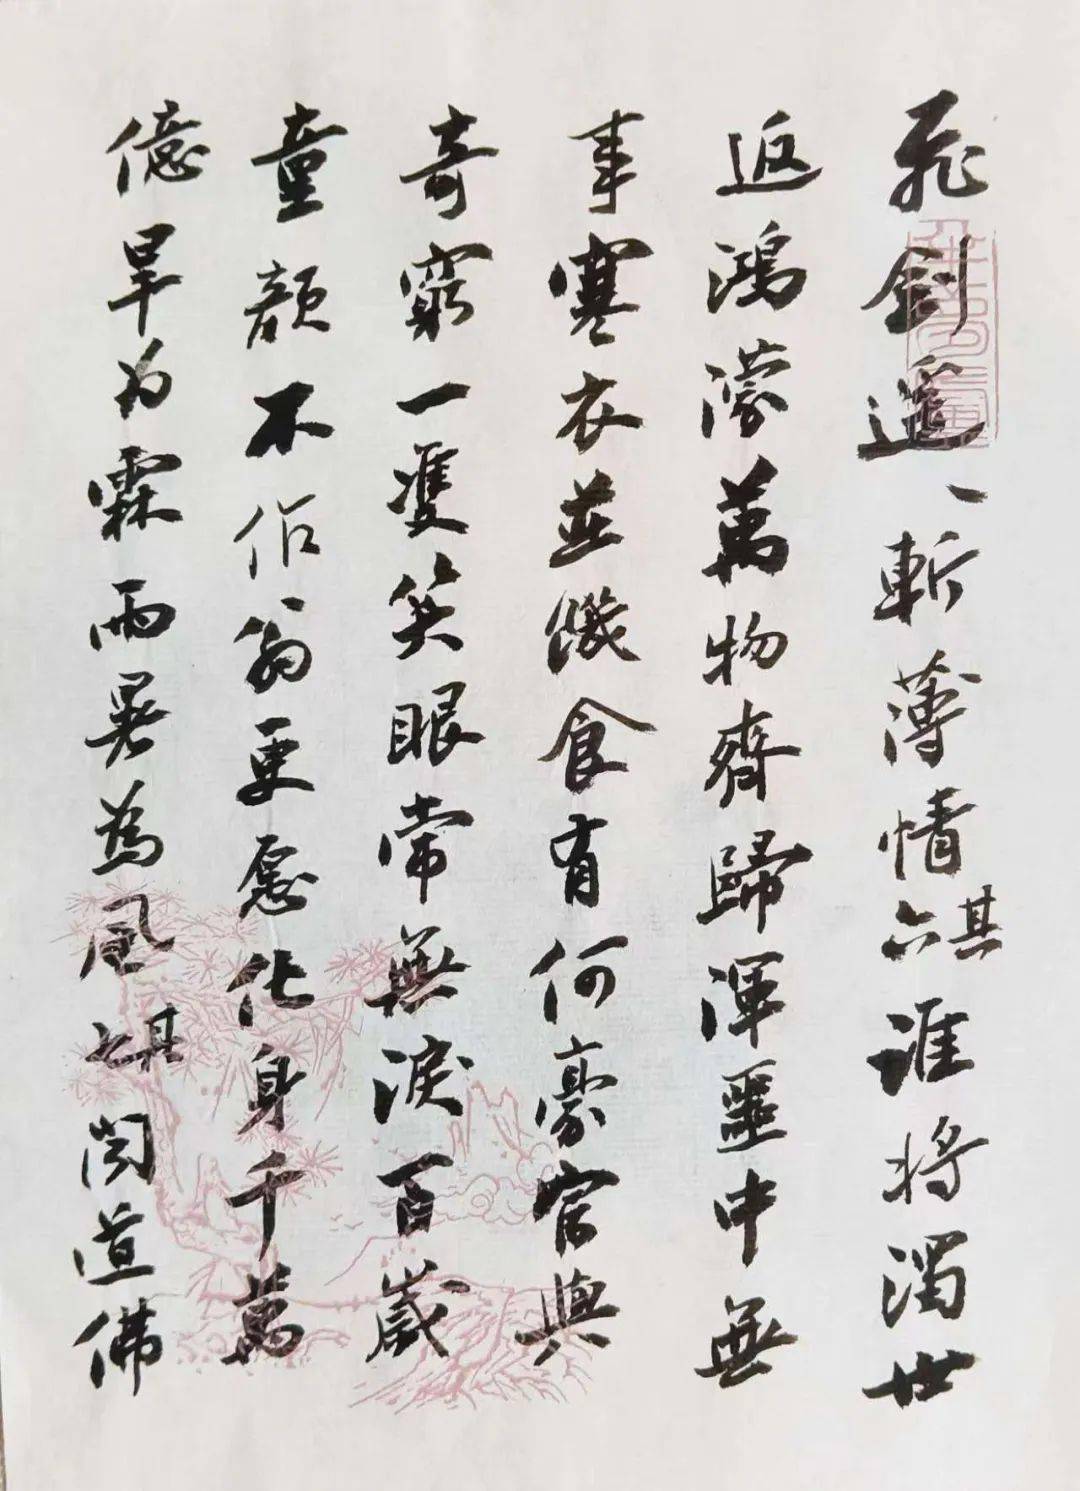 飛劍遥、斬薄情其六誰將濁世
返鴻濛萬物齊歸渾噩中無
事寒衣並饑食有何豪官與
奇窮一雙笑眼常無淚百歲
童顏不作翁更愿化身千萬
億旱为霖雨暑為風其七閔道佛